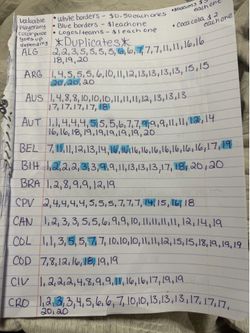 Valuable
Players/
• White borders - $0.50 each ones
• Blue borders - $1 each one
each one
• Logos/teams - $1 each one
• Coca cola $2
each one
*Duplicates*
ALG 2,2,3,5,5,5,5,6,6,7,7,7,11,11,16,16
18,19,20
ARG 1,4,5,5,5,6,10,11,12,13,13,13,13,15,15
20,20,20
AUS 1,4,8,8,10,10,10,11,11,11,12,13,13,13
17,17,17,17,18
AUT 1,1,4,4,4,5,5,5,6,6,7,7,9,9,9,11,11,12,14
16,16,18,19,19,19,19,19,20
BEL
BIH 1,2,2,2,3,3,9,9,11,13,13,13,17,18,20,20
BRA 1,2,8,9,9,12,19
CPV 2,4,4,4,4,5,5,5,7,7,7,14,15,16,18
CAN 1,2,3,3,5,5,6,9,9,10,11,11,11,11,12,14,19
COL 1,1,3,5,5,7,7,10,10,10,11,11,12,12,15,15,18,19,19,19
COD 7,8,12,16,18,19,19
CIV 1,2,2,2,4,8,9,9,11,16,16,17,19,19
CRO 1,2,3,3,4,5,6,6,7,10,10,13,13,13,17,17,17,
20,20